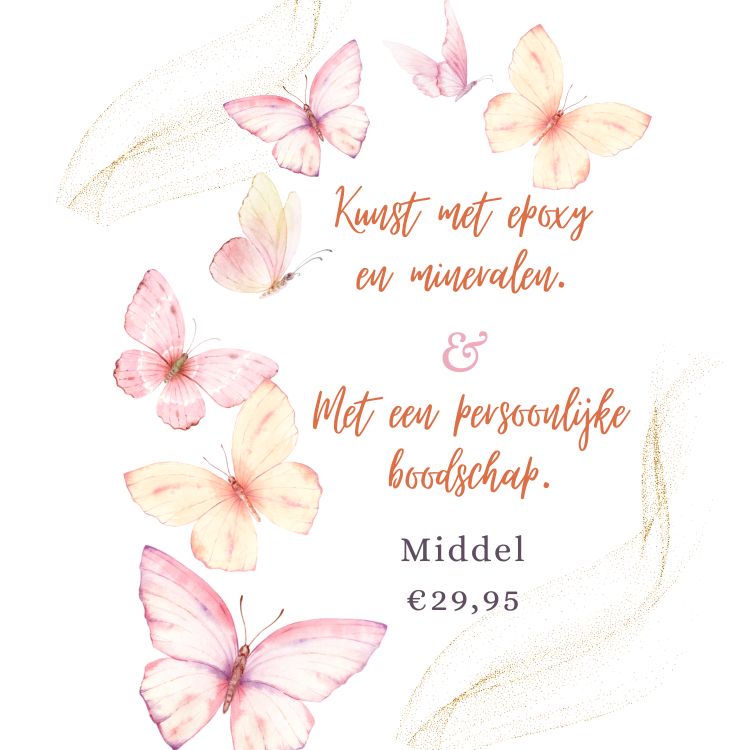 Kunst met epoxy
en mineralen.
&
Met een persoonlijke
boodschap.
Middel
€29,95